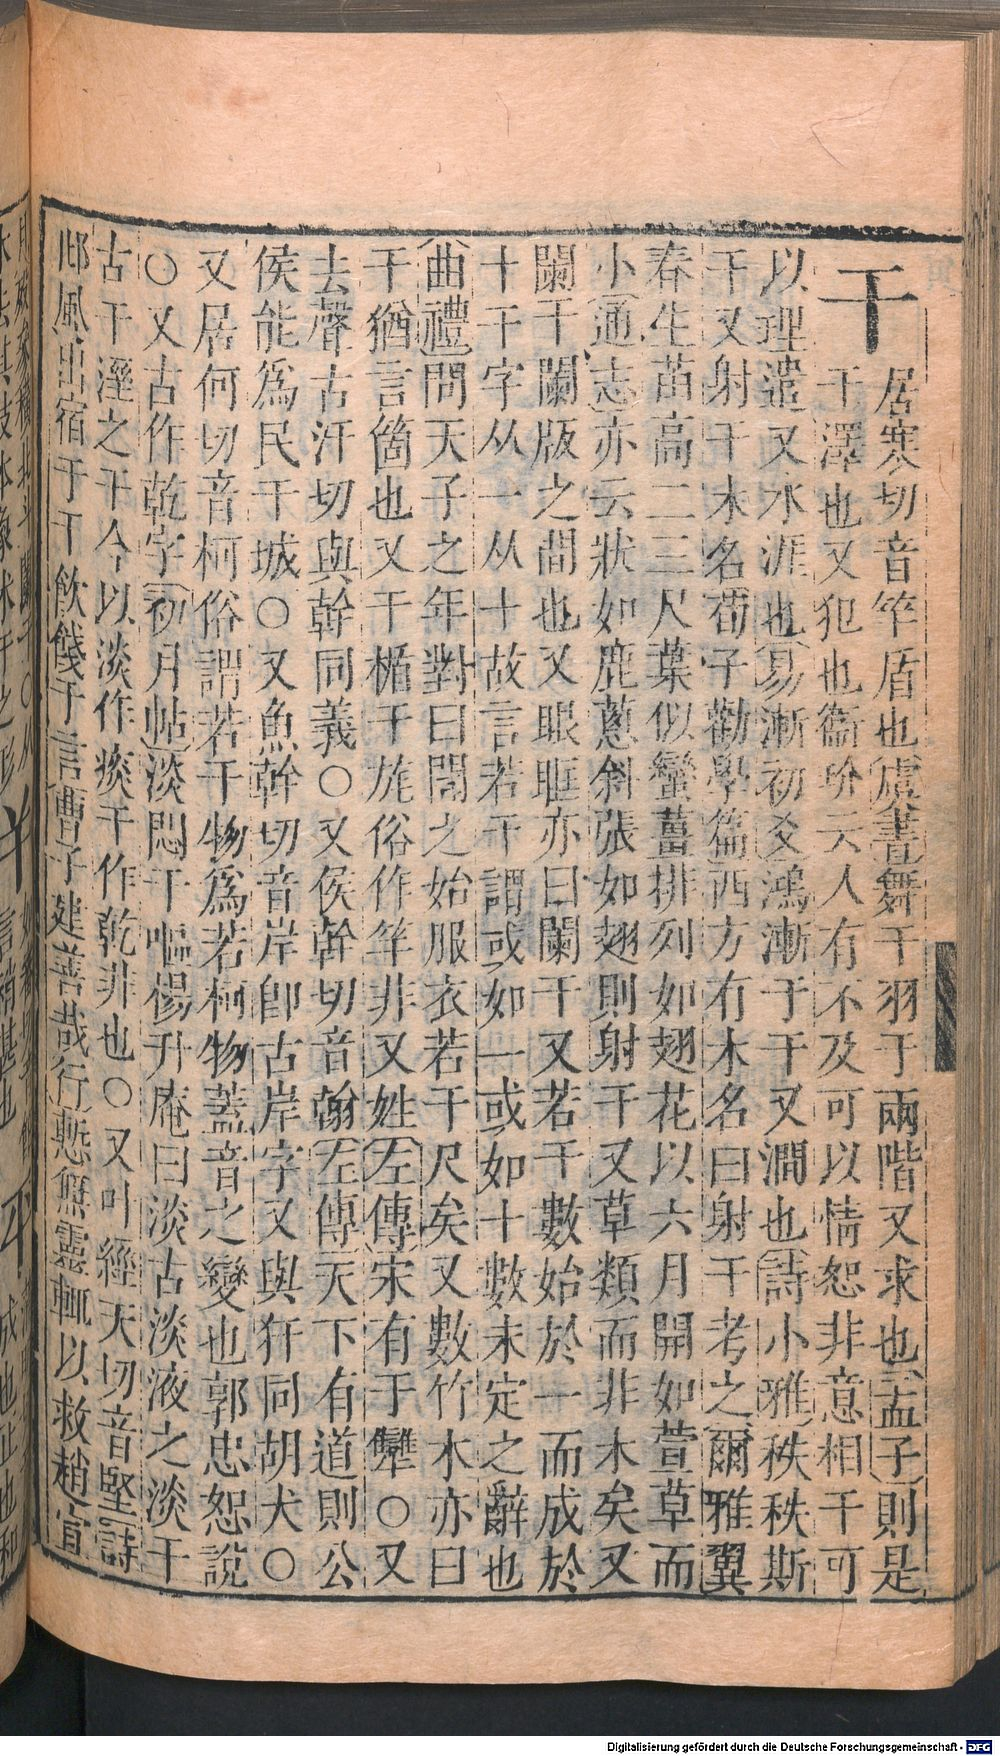 干
居寒切音竿盾也虞書舞干羽于兩階又求也孟子則是
干澤也又犯也衞玠云人有不及可以情恕非意相干可
以理遣又水涯也易漸初爻鴻漸于干又澗也詩小雅秩秩斯
干又射干木名荀子勸學篇西方有木名曰射干考之爾雅翼
春生苗高二三尺葉似蠻薑排列如翅花以六月開如萱草而
小通志亦云狀如鹿蔥斜張如翅則射干又草類而非木矣又
闌干闌版之間也又眼眶亦曰闌干又若干數始於一而成於
十干字从一从十故言若干謂或如一或如十數未定之辭也
曲禮問天子之年對曰聞之始服衣若干尺矣又數竹木亦曰
干猶言箇也又干楯干旄俗作竿非又姓左傳宋有干犨○又
去聲古汗切與幹同義○又侯幹切音翰左傳天下有道則公
侯能爲民干城○又魚幹切音岸卽古岸字又與犴同胡犬○
又居何切音柯俗謂若干物爲若柯物蓋音之變也郭忠恕說
○又古作乾字初月帖淡悶干嘔楊升庵曰淡古淡液之淡干
古干溼之干今以淡作痰干作乾非也○又叶經天切音堅詩
邶風出宿于干飲餞于言曹子建善哉行慙無靈輒以救趙宣
Digitalisierung gefördert durch die Deutsche Forschungsgemeinschaft - DFG